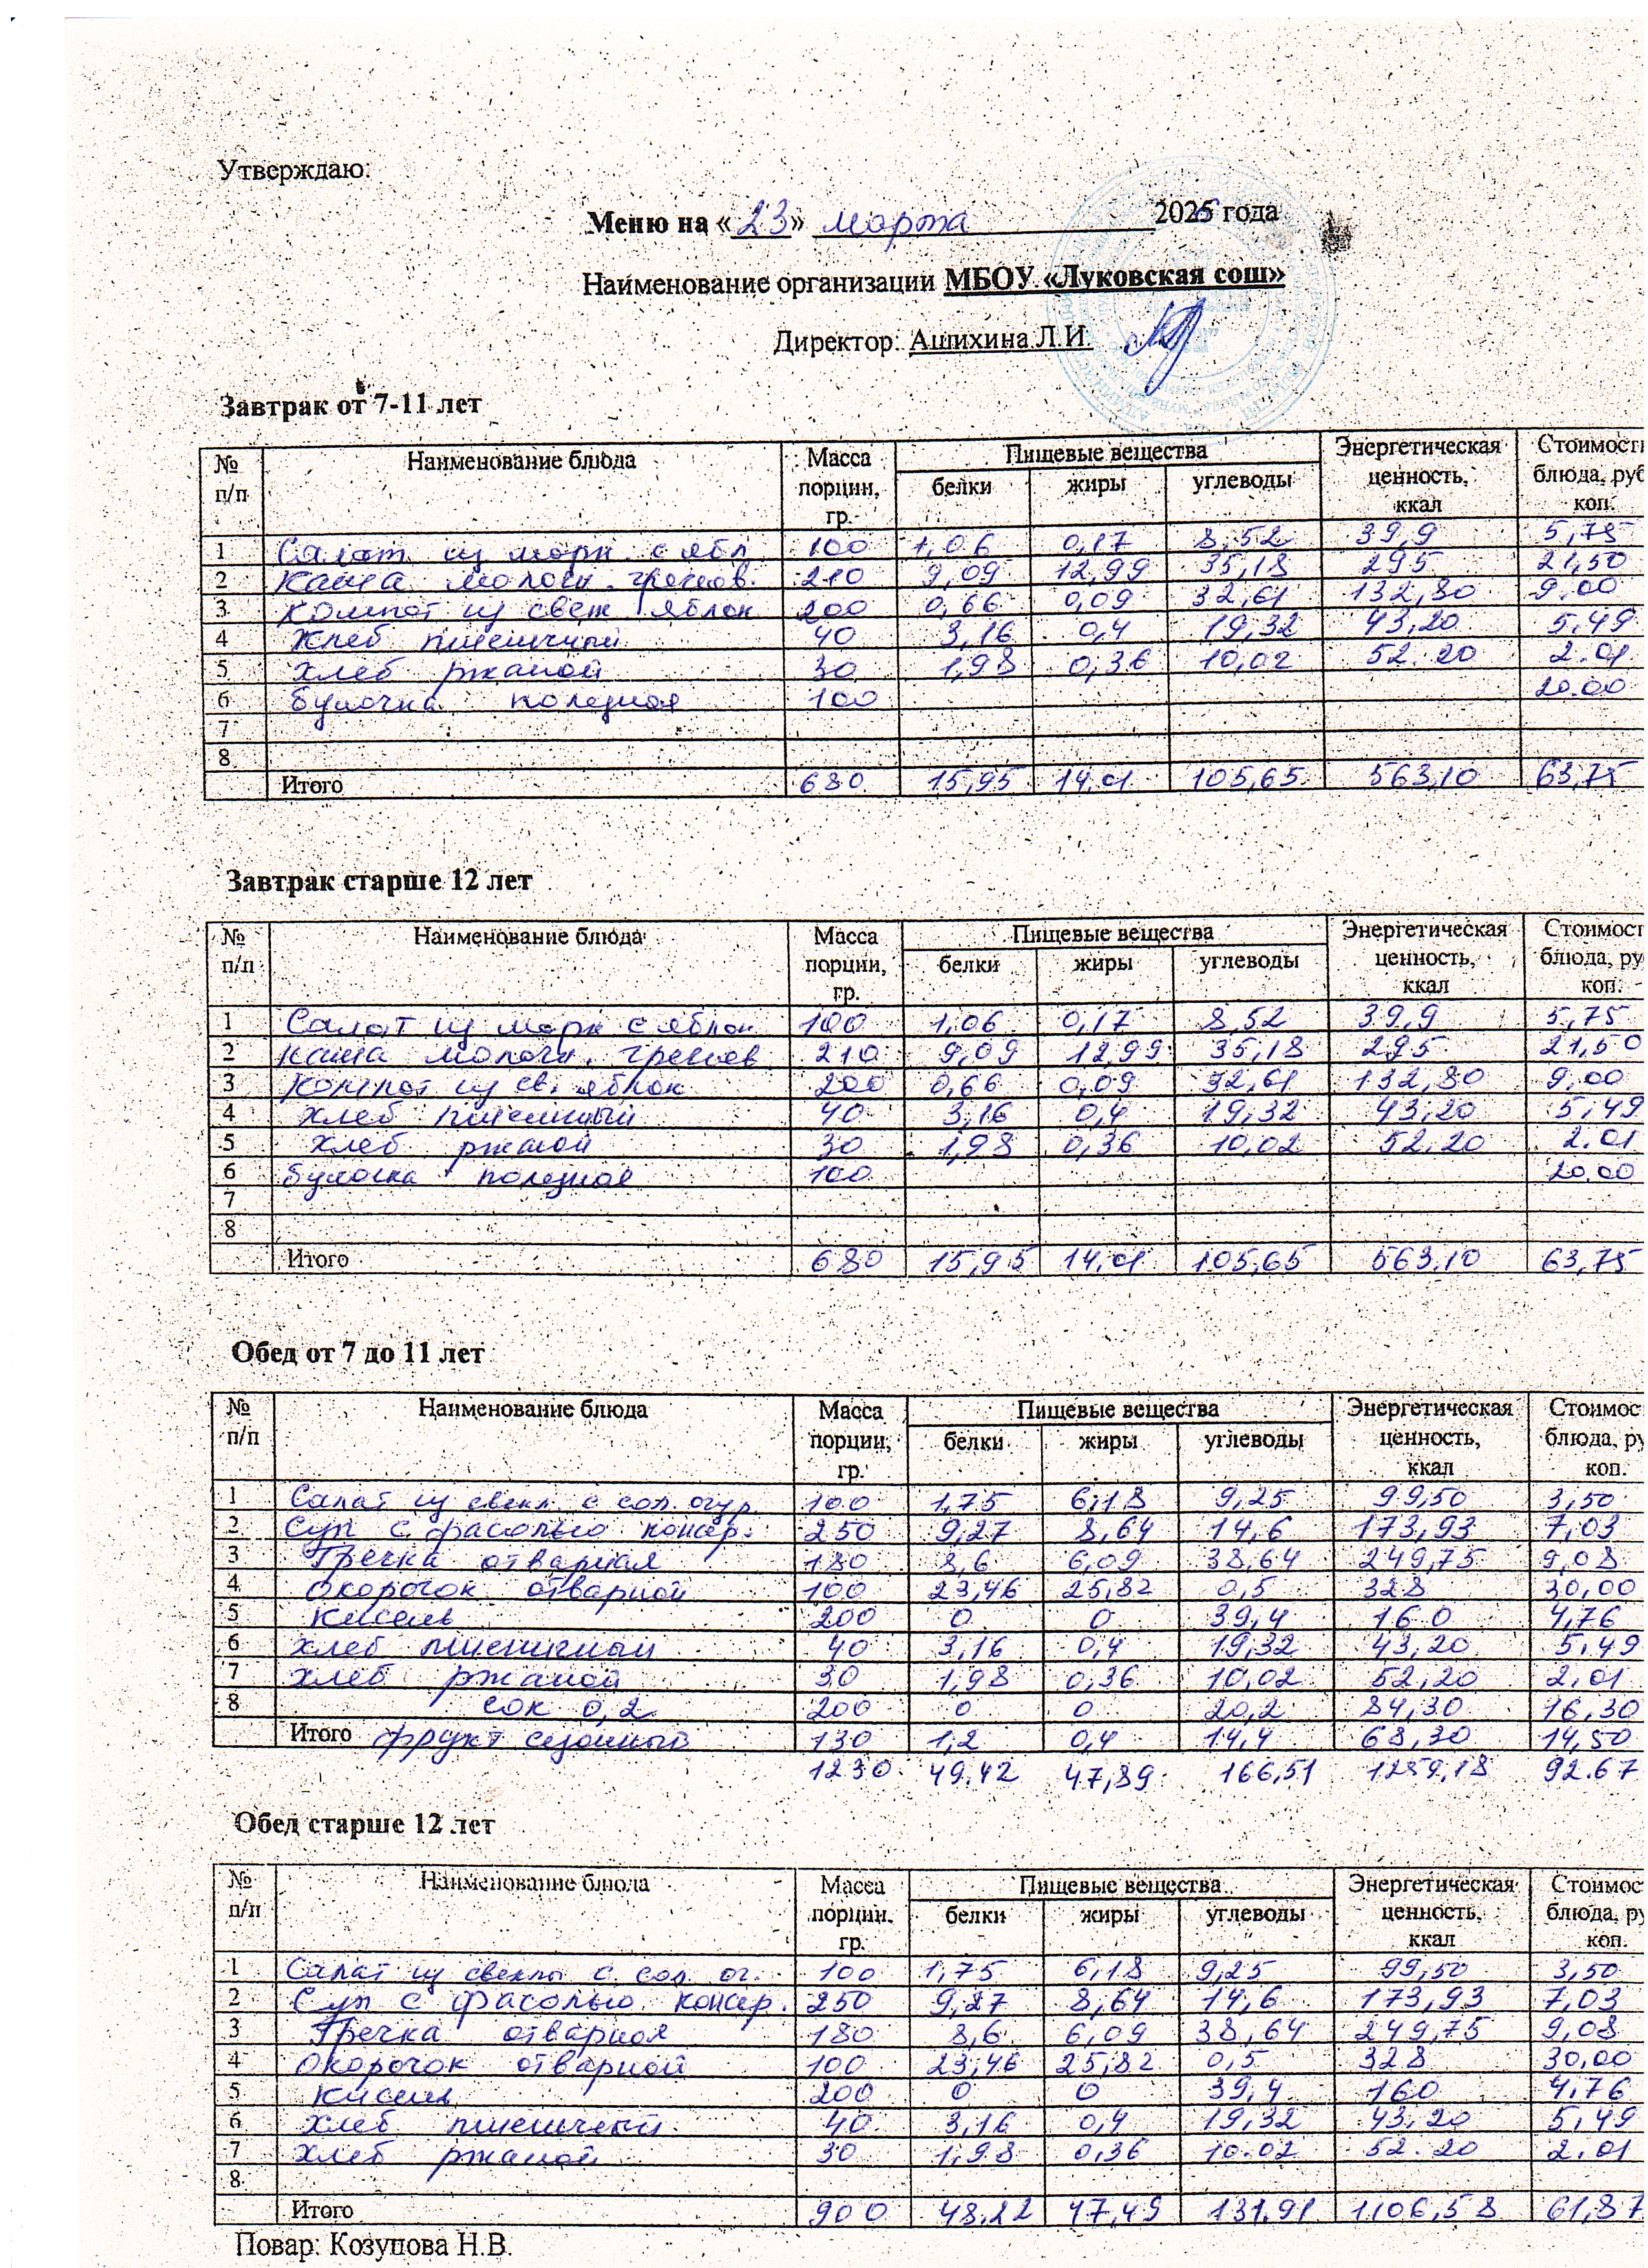 Утверждаю:
Меню на «23» марта 2026 года
Наименование организации МБОУ «Луковская сош»
Директор: Ашихина Л.И.
Завтрак от 7-11 лет
№ п/п Наименование блюда Масса порции, гр. Пищевые вещества белки жиры углеводы Энергетическая ценность, ккал Стоимость блюда, руб коп.
1 Салат из морк. с ябл 100 1,06 0,17 8,52 39,9 5,75
2 Каша молочн. гречнев. 210 9,09 12,99 35,18 295 21,50
3 Компот из свеж яблок 200 0,66 0,09 32,61 132,80 9.00
4 Хлеб пшеничный 40 3,16 0,4 19,32 43,20 5,49
5 Хлеб ржаной 30 1,98 0,36 10,02 52.20 2.01
6 булочка полезная 100 20.00
7
8
Итого 680 15,95 14,01 105,65 563,10 63,75
Завтрак старше 12 лет
№ п/п Наименование блюда Масса порции, гр. Пищевые вещества белки жиры углеводы Энергетическая ценность, ккал Стоимост блюда, ру коп.
1 Салат из морк с яблок 100 1,06 0,17 8,52 39,9 5,75
2 каша молочн. гречнев 210 9,09 12,99 35,18 295 21,50
3 Компот из св. яблок 200 0,66 0,09 32,61 132,80 9,00
4 хлеб пшеничный 40 3,16 0,4 19,32 43,20 5,49
5 хлеб ржаной 30 1,98 0,36 10,02 52,20 2.01
6 булочка полезная 100 20.00
7
8
Итого 680 15,95 14,01 105,65 563,10 63,75
Обед от 7 до 11 лет
№ п/п Наименование блюда Масса порции, гр. Пищевые вещества белки жиры углеводы Энергетическая ценность, ккал Стоимос блюда, ру коп.
1 Салат из свекл. с сол. огур. 100 1,75 6,18 9,25 99,50 3,50
2 Суп с фасолью консер. 250 9,27 8,64 14,6 173,93 7,03
3 Гречка отварная 180 8,6 6,09 38,64 249,75 9,08
4 Окорочок отварной 100 23,46 25,82 0,5 328 30,00
5 Кисель 200 0 0 39,4 160 4,76
6 хлеб пшеничный 40 3,16 0,4 19,32 43,20 5,49
7 хлеб ржаной 30 1,98 0,36 10,02 52,20 2,01
8 сок 0,2 200 0 0 20,2 84,30 16,30
Итого фрукт сезонный 130 1,2 0,4 14,4 68,30 14,50
1230 49,42 47,89 166,51 1259,18 92.67
Обед старше 12 лет
№ п/п Наименование блюда Масса порции, гр. Пищевые вещества белки жиры углеводы Энергетическая ценность, ккал Стоимос блюда, ру коп.
1 Салат из свеклы с сол. ог. 100 1,75 6,18 9,25 99,50 3,50
2 Суп с фасолью консер. 250 9,27 8,64 14,6 173,93 7,03
3 Гречка отварная 180 8,6 6,09 38,64 249,75 9,08
4 окорочок отварной 100 23,46 25,82 0,5 328 30,00
5 Кисель 200 0 0 39,4 160 4,76
6 хлеб пшеничный 40 3,16 0,4 19,32 43,20 5,49
7 хлеб ржаной 30 1,98 0,36 10.02 52.20 2.01
8
Итого 900 48,22 47,49 131,91 1106,58 61,87
Повар: Козупова Н.В.